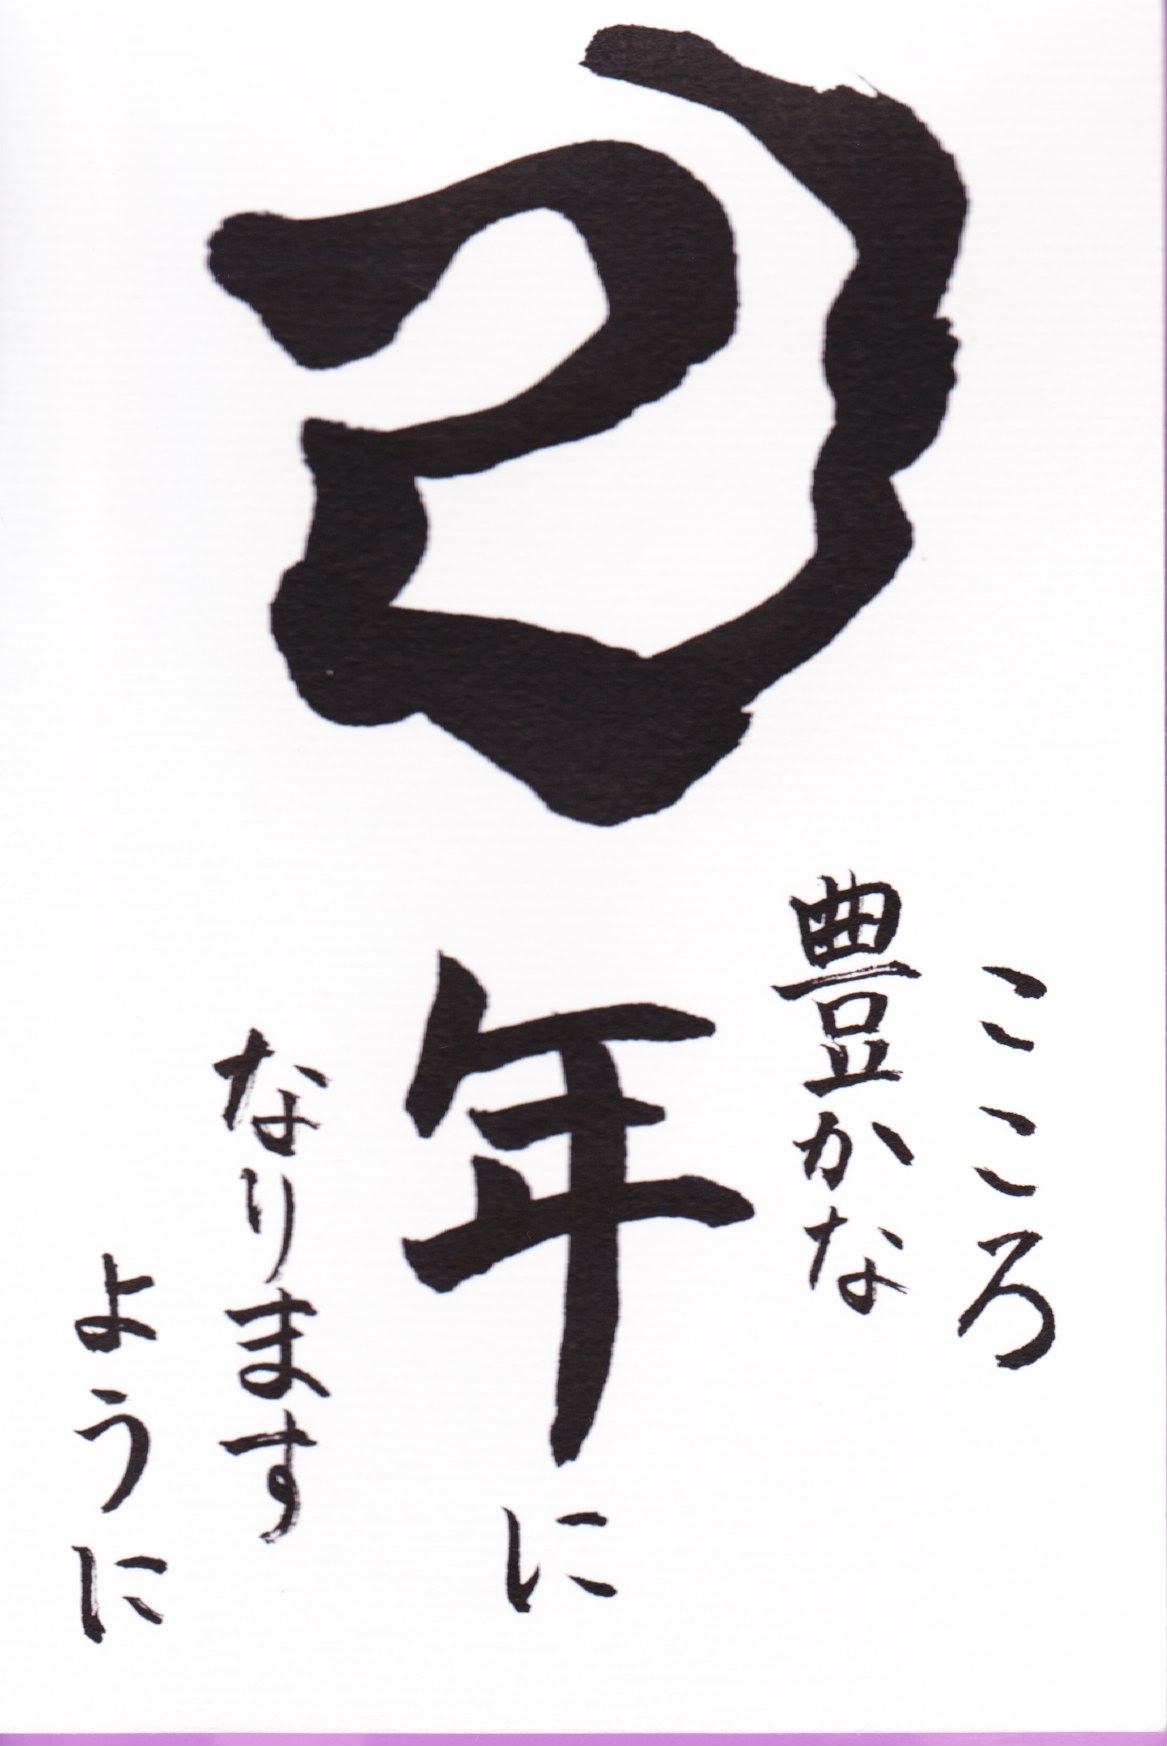 こころ
豊かな
巳年に
なります
ように